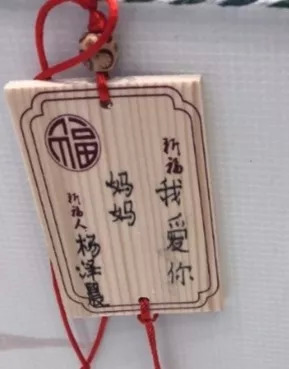 福
祈福 我爱你
妈妈
祈福人 杨泽晨